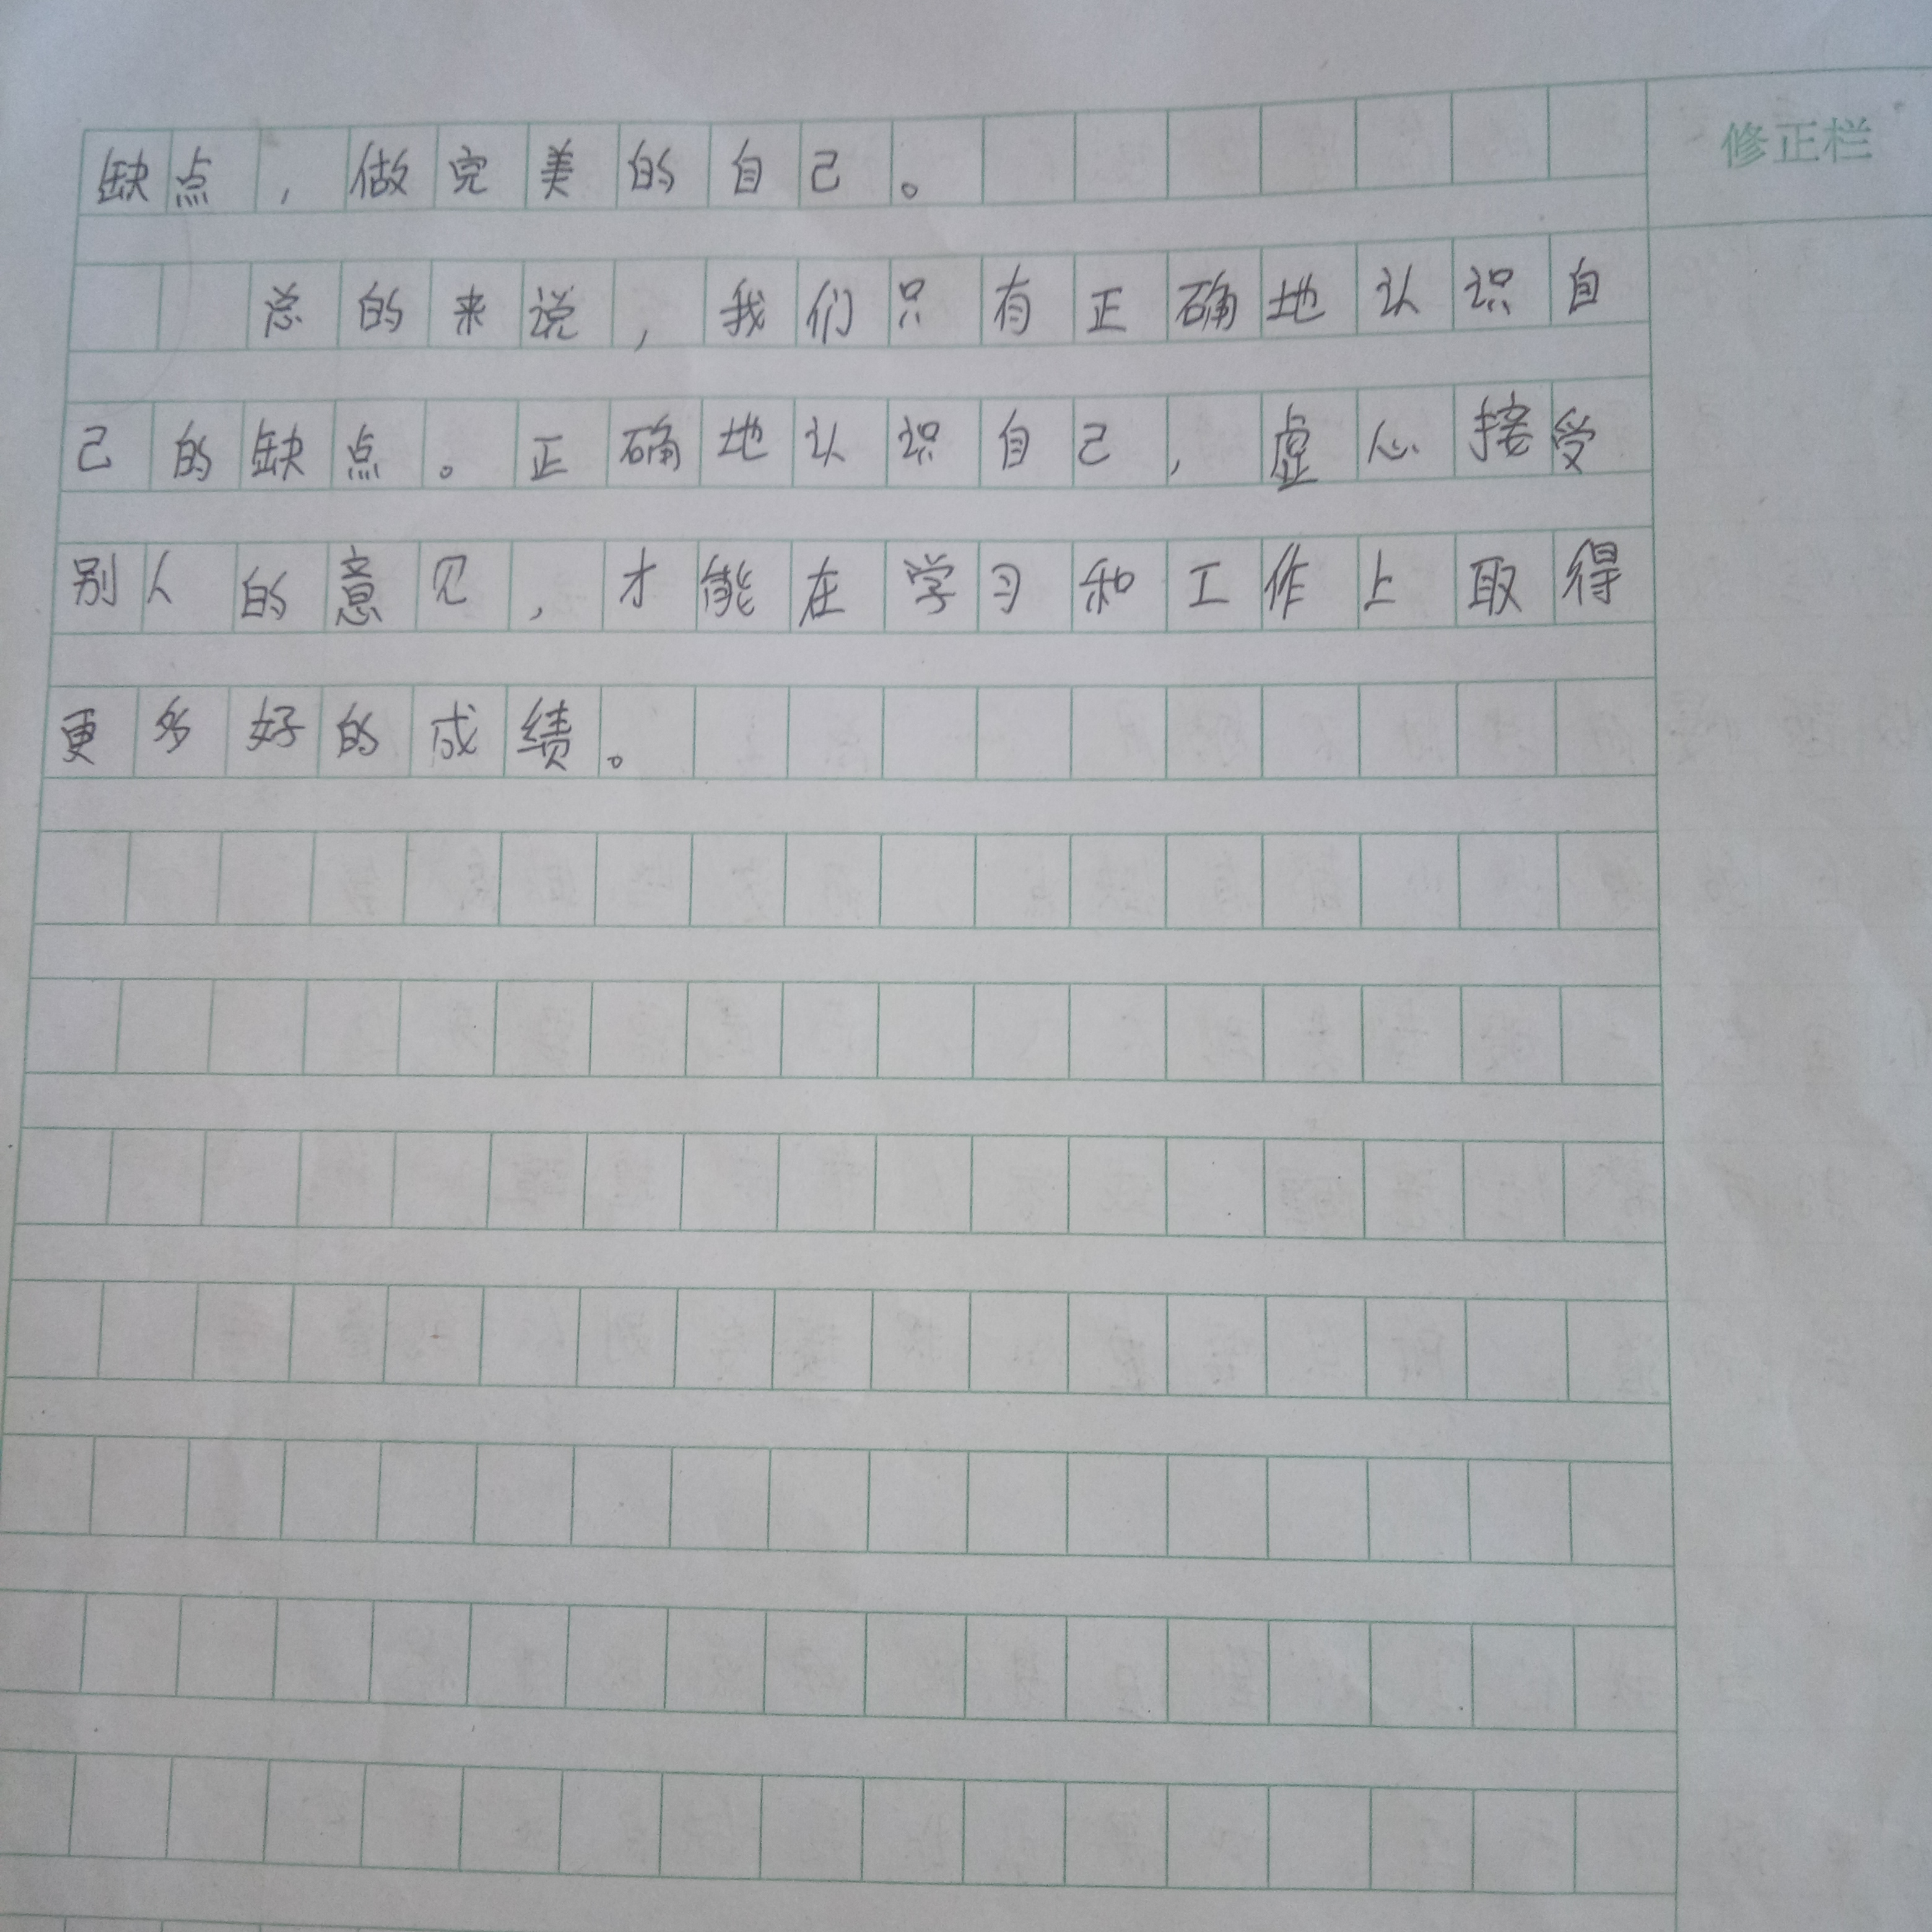 修正栏
缺点，做完美的自己。
总的来说，我们只有正确地认识自
己的缺点。正确地认识自己，虚心接受
别人的意见，才能在学习和工作上取得
更多好的成绩。